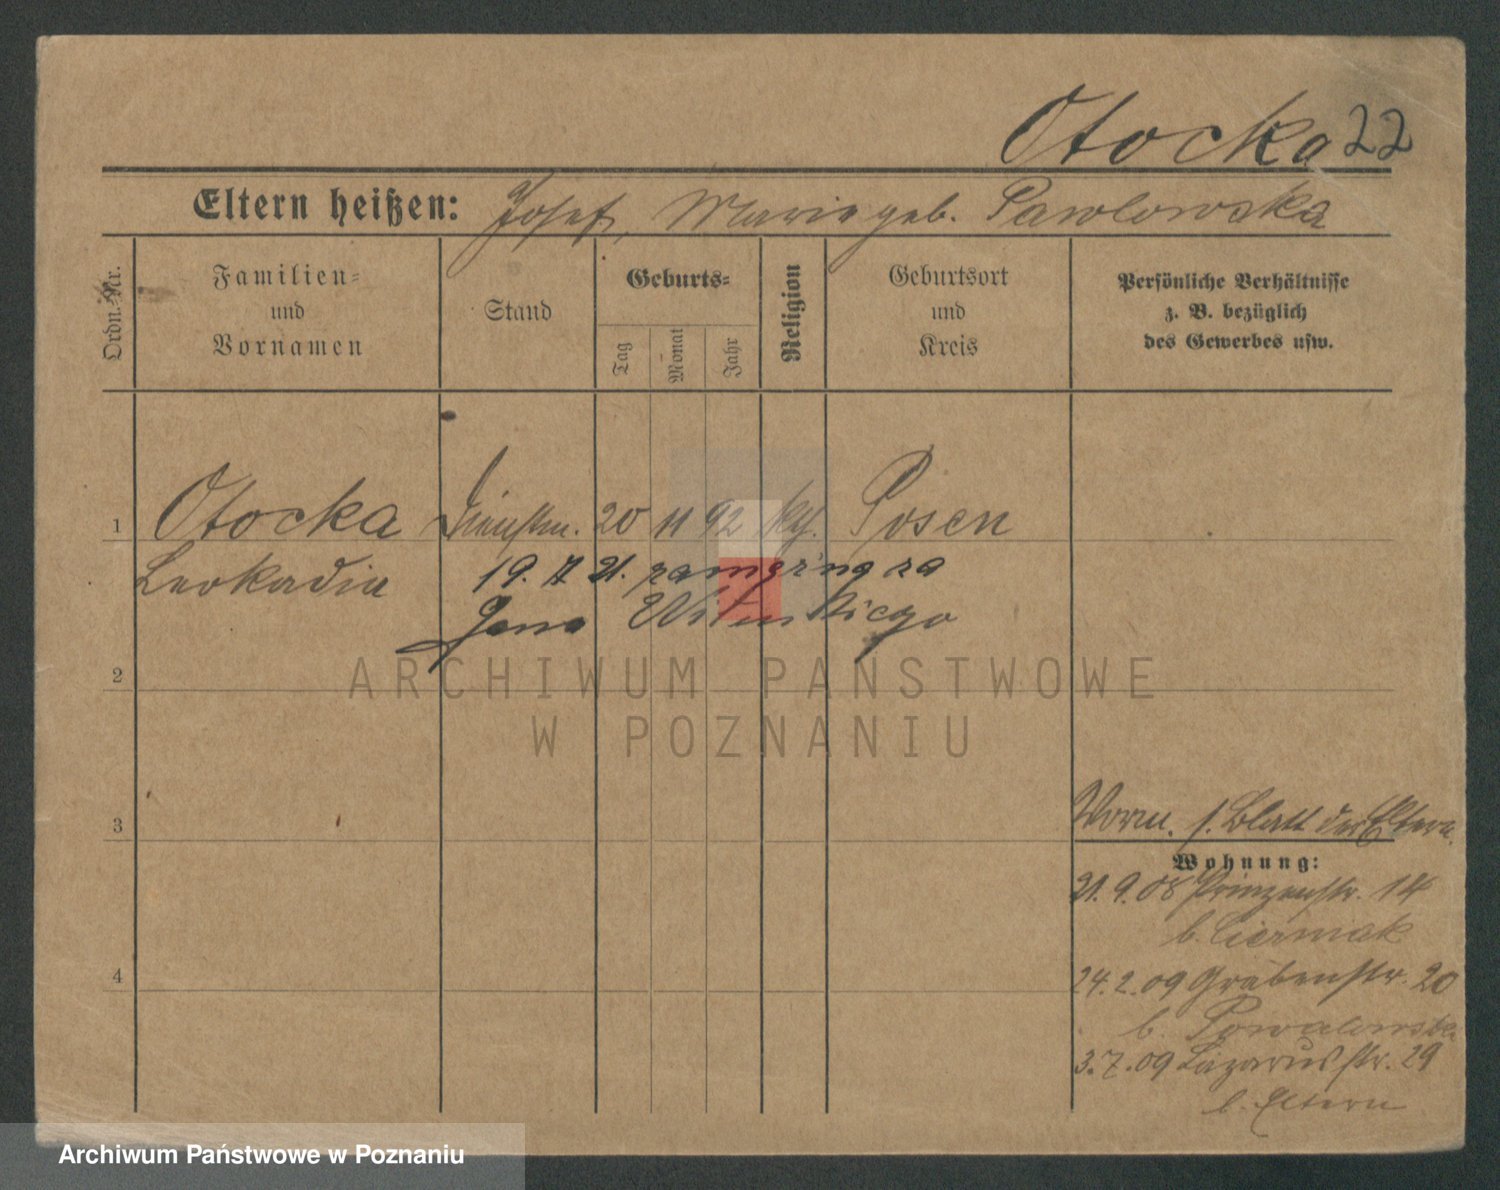 Otocka 22
Eltern heißen: Josef, Marie geb. Pawlowska
Ordn.-Nr.
Familien-
und
Vornamen
Stand
Geburts-
Tag
Monat
Jahr
Religion
Geburtsort
und
Kreis
Persönliche Verhältnisse
z. B. bezüglich
des Gewerbes usw.
1 Otocka Dienstm. 20 11 92 kth. Posen
Leokadia 19. 7 21. zamężna za
Jana
2
ARCHIWUM PAŃSTWOWE
W POZNANIU
3
Vorm. s. Blatt der Eltern.
Wohnung:
21. 9. 08 Prinzenstr. 14
b. Cierniak
4
24. 2. 09 Grabenstr. 20
b.
3. 7. 09 Lazarusstr. 29
b. Eltern
Archiwum Państwowe w Poznaniu